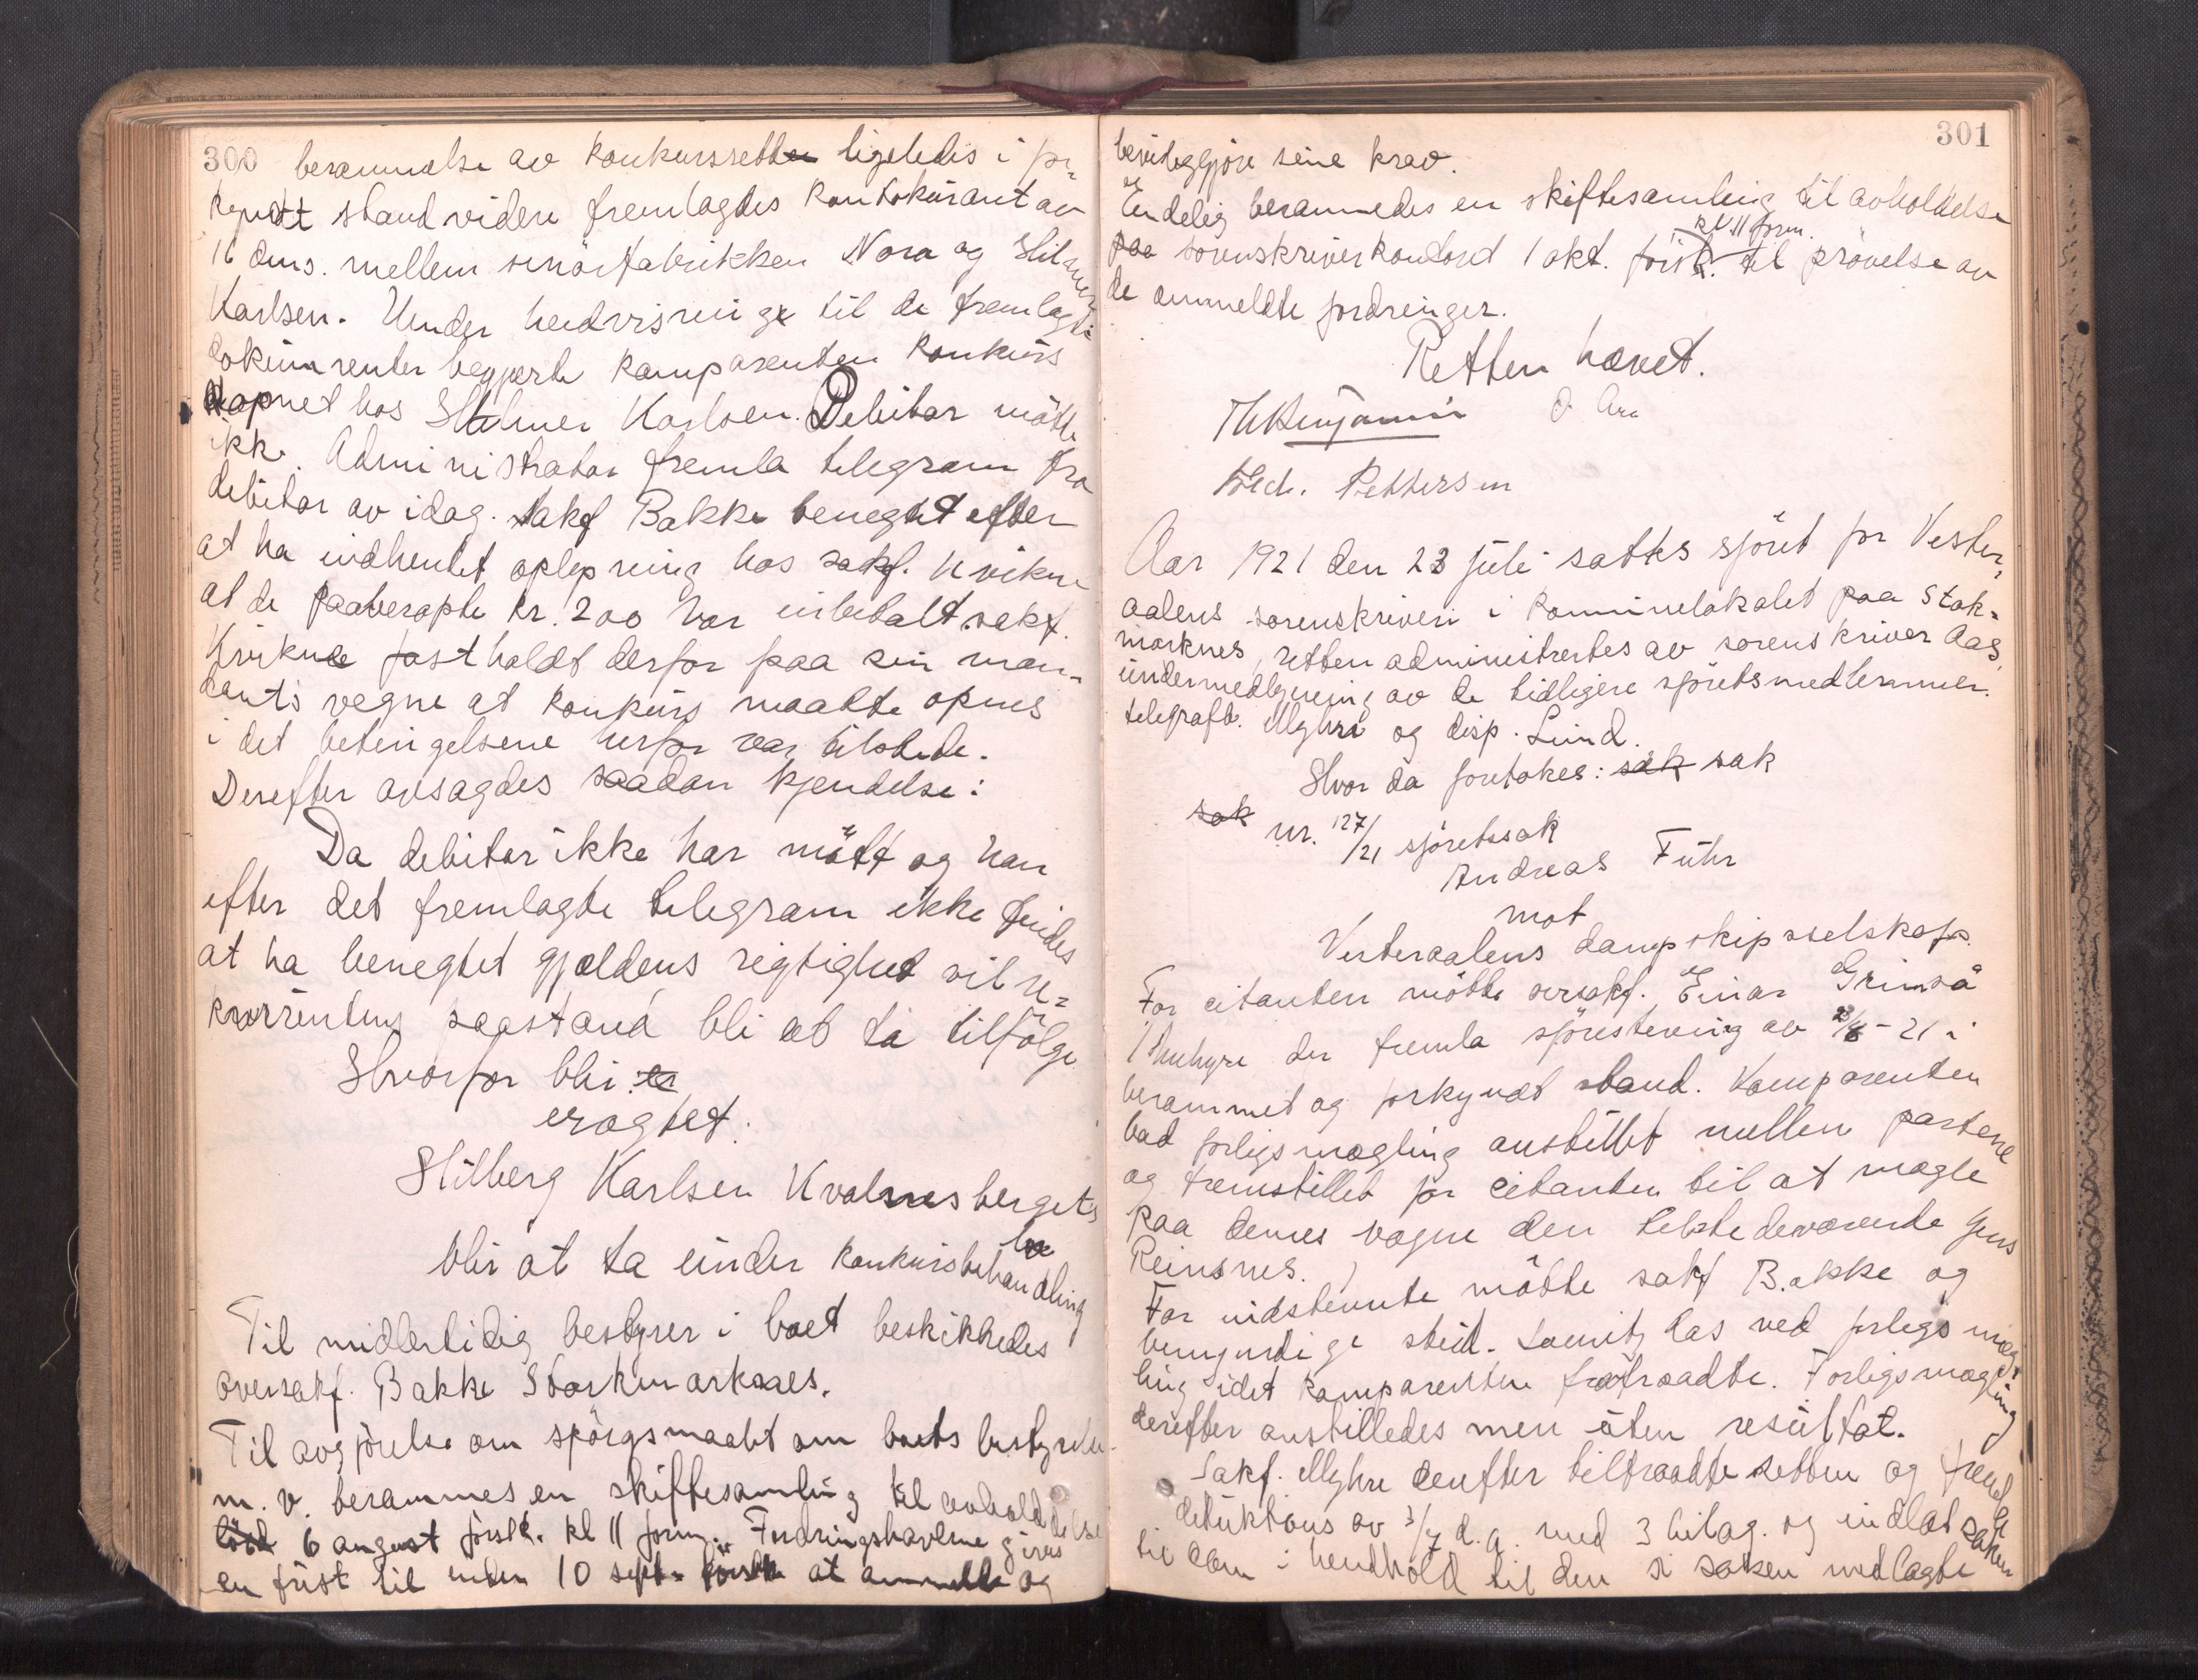 300 berammelse av konkursretten ligeledes i for-
kyndt stand videre fremlagdes kontokurant av
16 dms. mellem smörfabrikken Nora og Hilmer
Karlsen. Under hendvisning til de fremlagte
dokumenter begjærte komparenten konkurs
aapnet hos Hilmer Karlsen. Debitor mötte
ikke. Administrator fremla telegram fra
debitor av idag. Sakf Bakke benegtet efter
at ha indhentet oplysning hos sakf. Kvikne
at de paaberopte kr. 200 var indbetalt. sakf.
Kvikne fastholdt derfor paa sin man-
dants vegne at konkurs maatte opnes
i det betingelsene herfor var tilstede.
Derefter avsagdes saadan kjendelse:
Da debitor ikke har mött og han
efter det fremlagte telegram ikke findes
at ha benegtet gjældens rigtighet vil re-
kvirentens paastand bli at ta tilfölge
Hvorfor blir er
eragtet:
Hilberg Karlsen Kvalnesbergets bo
blir at ta under konkursbehandling
Til midlertidig bestyrer i boet beskikkedes
oversakf. Bakke Stokmarknes.
Til avgjörelse om spörgsmaalet om boets bestyrelse
m. v. berammes en skiftesamling til avholdelse
lörd 6 august förstk. kl 11 form. Fordringshaverne gives
en frist til inden 10 sept. förstk at anmelde og
301
bevisliggjöre sine krav.
Endelig berammedes en skiftesamling til avholdelse
paa sorenskriverkontoret 1 okt. förstk. kl 11 form. til prövelse av
de anmeldte fordringer.
Retten hævet.
Th Benjamin O. Aas
Fred. Pettersen
Aar 1921 den 23 juli sattes sjöret for Vester-
aalens sorenskriveri i kommunelokalet paa Stok-
marknes, retten administrertes av sorenskriver Aas,
under medbetjening av de tidligere sjöretsmedlemmer.
telegrafb. Myhre og disp. Lund.
Hvor da foretokes: sak sak
sak nr. 127/21 sjöretssak
Andreas Führ
mot
Vesteraalens dampskipsselskap.
For citanten mötte oversakf. Einar Grimsö
Myhre der fremla sjöretstevning av /6 - 21 i
berammet og forkyndt stand. Komparenten
bad forligsmægling anstillet mellem partene
og fremstillet for citanten til at mægle
paa dennes vegne den tilstedeværende Jens
Reinsnes.
For indstevnte mötte sakf Bakke og
bemyndige stud. Lomitz Aas ved forligsmæg-
ling idet komparenten fratraadte. Forligsmægling
derefter anstilledes men uten resultat.
Sakf. Myhre derefter tiltraadte retten og fremla
deduktions av 3/7 d. a. med 3 bilag. og indlot saken
til dom i henhold til den i saken nedlagte